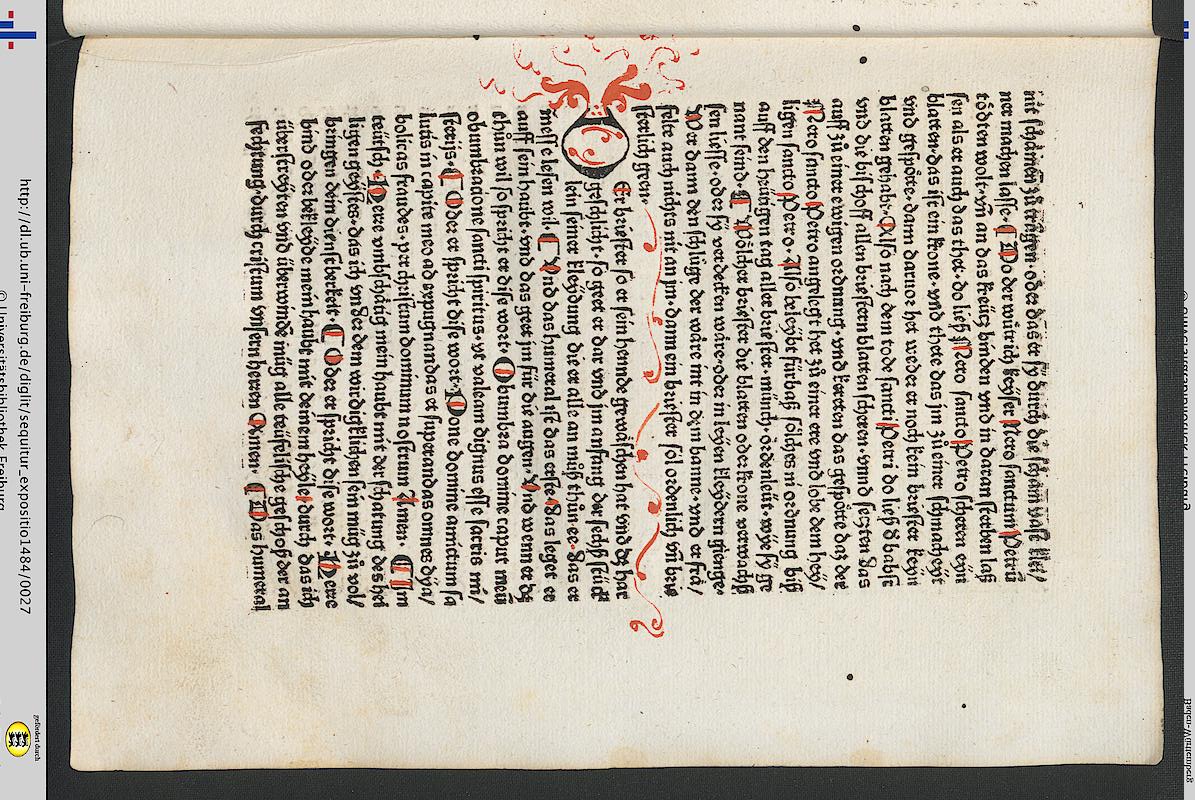 nit schämen zů tragen. oder das er sy durch die scham vast klei/
ner machen lasse. ¶ Do der wüttrich keyser Nero sanctum Petrū
tödten wolt. vñ an das kreütz binden vnd in daran sterben las
sen als er auch das thet. do ließ Nero sancto Petro scheren eyn
blatten. das ist ein krone. vnd thete das jm zů einer schmacheyt
vnd gespötte. dann daruor het weder er noch kein briester keyn
blatten gehabt. Also nach dem tode sancti Petri do ließ d babst
vnd die bischoff allen briestern blatten scheren. vnnd setzten das
auff zů einer ewigen ordnung. vnd kereten das gespötte daz der
Nero sancto Petro angelegt het zů einer ere vnd lobe dem hey/
ligen sancto Petro. Also beleybt fürbaß sölches in ordnung biß
auff den heütigen tag aller briester. münch. ordenleüt. wye sy ge
nant seind. ¶ Wölcher briester die blatten oder krone verwachß
sen liesse. oder sy verdecken wäre. oder in leyen kleydern gienge.
Wer dann den schlüge der wäre nit in dem banne. vnd er frä/
felte auch nichts nit an jm. dann ein briester sol ordenlich vñ brie
sterlich geen.
Er briester so er sein hennde gewäschen hat vnd dz har
geschlicht. so geet er dar vnd jm anfang der sechß stück
lein seiner kleydung die er alle an můß thůn. ee. das er
messe lesen wil. ¶ Vnd das humeral ist das erste. das leget er
auff sein haubt. vnd das geet jm für die augen. Vnd wenn er dz
thůn wil so spricht er dise wort. Obumbra domine caput meū
obumbracione sancti spiritus. vt valeam dignus esse sacris mi/
sterijs. ¶ Oder er spricht dise wort. Pone domine amictum sa
lutis in capite meo ad expugnandas et superandas omnes dya/
bolicas fraudes. per christum dominum nostrum Amen. ¶ Im
teütsch. Here vmbschätig mein haubt mit der schatung des hei
ligen geystes. das ich vnder dem wirdigklichen son müg zů vol/
bringen dem dienstberkeit. ¶ Oder er spricht dise wort. Here
bind oder bekleyde mein haubt mit deinem heyle durch das ich
überstreyten vnd überwinde müg alle teüfelische geschoß der an
fechtung. durch cristum vnsern herren Amen. ¶ Das humeral
http://dl.ub.uni-freiburg.de/diglit/sequitur_expositio1484/0027
© Universitätsbibliothek Freiburg
gefördert durch